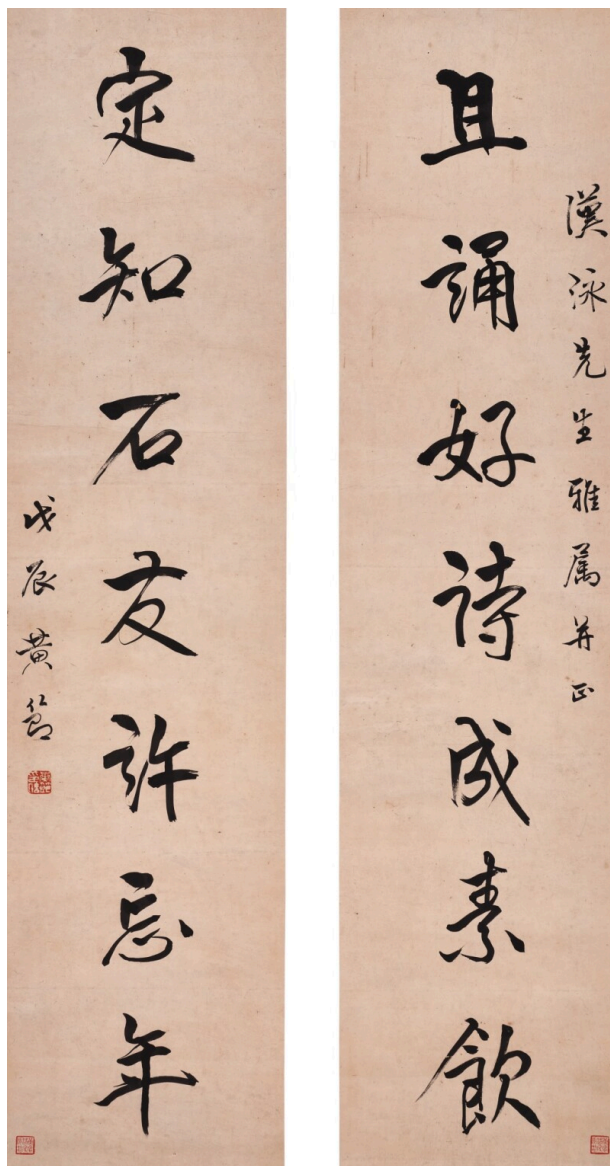 漢泳先生雅属并正
且誦好詩成素飲
定知石友許忘年
戊辰黄節